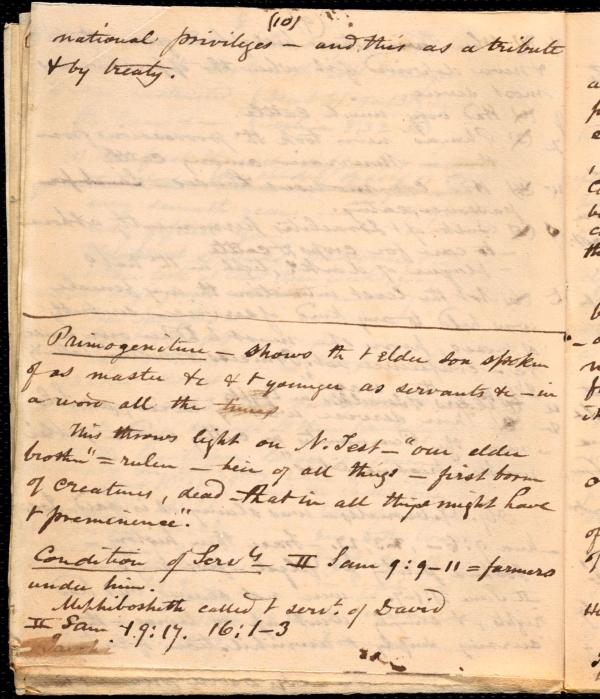 (10)
national privileges – and this as a tribute
& by treaty.
Primogeniture – shows th t elder son spoken
of as master &c & t younger as servants &c – in
a word all the times
This throws light on N. Test – "our elder
brother" = ruler – heir of all things – first born
of creatures, dead – that in all things might have
t preminence".
Condition of Servts II Sam 9:9–11 = farmers
under him.
Mephibosheth called t servt of David
II Sam 19:17. 16:1–3